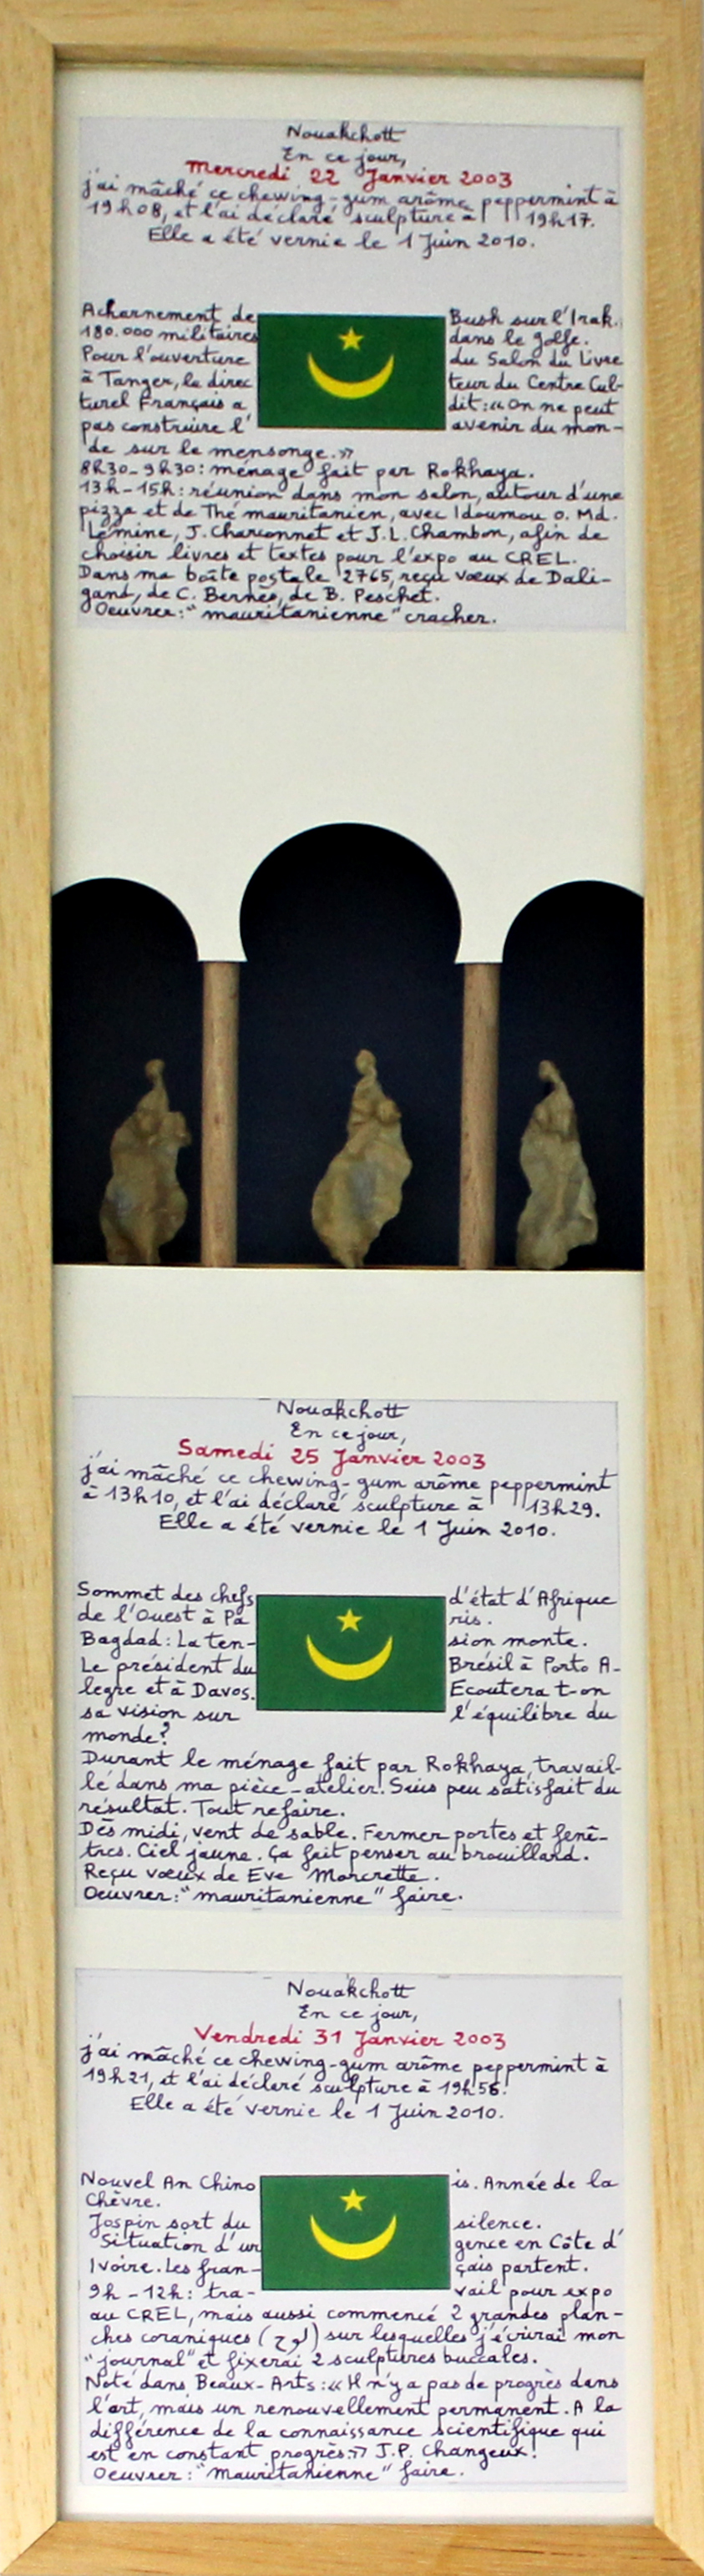 Nouakchott
En ce jour,
Mercredi 22 Janvier 2003
j'ai mâché ce chewing-gum arôme peppermint à
19h08, et l'ai déclaré sculpture à 19h17.
Elle a été vernie le 1 Juin 2010.
Acharnement de Bush sur l'Irak.
180.000 militaires dans le golfe.
Pour l'ouverture du Salon du Livre
à Tanger, le direc teur du Centre Cul-
turel Français a dit : «On ne peut
pas construire l' avenir du mon-
de sur le mensonge.»
8h30-9h30 : ménage fait par Rokhaya.
13h-15h : réunion dans mon salon, autour d'une
pizza et de Thé mauritanien, avec Idoumou o. Md.
Lémine, J. Charconnet et J.L. Chambon, afin de
choisir livres et textes pour l'expo au CREL.
Dans ma boîte postale 2765, reçu vœux de Dali-
gand, de C. Bernès, de B. Peschet.
Oeuvrer : "mauritanienne" cracher.
Nouakchott
En ce jour,
Samedi 25 Janvier 2003
j'ai mâché ce chewing-gum arôme peppermint
à 13h10, et l'ai déclaré sculpture à 13h29.
Elle a été vernie le 1 Juin 2010.
Sommet des chefs d'état d'Afrique
de l'Ouest à Pa ris.
Bagdad : La ten- sion monte.
Le président du Brésil à Porto A-
legre et à Davos. Ecoutera t-on
sa vision sur l'équilibre du
monde?
Durant le ménage fait par Rokhaya, travail-
lé dans ma pièce-atelier. Suis peu satisfait du
résultat. Tout refaire.
Dès midi, vent de sable. Fermer portes et fenê-
tres. Ciel jaune. Ça fait penser au brouillard.
Reçu vœux de Eve Morcrette.
Oeuvrer : "mauritanienne" faire.
Nouakchott
En ce jour,
Vendredi 31 Janvier 2003
j'ai mâché ce chewing-gum arôme peppermint à
19h21, et l'ai déclaré sculpture à 19h56.
Elle a été vernie le 1 Juin 2010.
Nouvel An Chino is. Année de la
Chèvre.
Jospin sort du silence.
Situation d'ur gence en Côte d'
Ivoire. Les fran- çais partent.
9h-12h : tra- vail pour expo
au CREL, mais aussi commencé 2 grandes plan-
ches coraniques (لوح) sur lesquelles j'écrirai mon
"journal" et fixerai 2 sculptures buccales.
Noté dans Beaux-Arts : «Il n'y a pas de progrès dans
l'art, mais un renouvellement permanent. A la
différence de la connaissance scientifique qui
est en constant progrès.» J.P. Changeux.
Oeuvrer : "mauritanienne" faire.